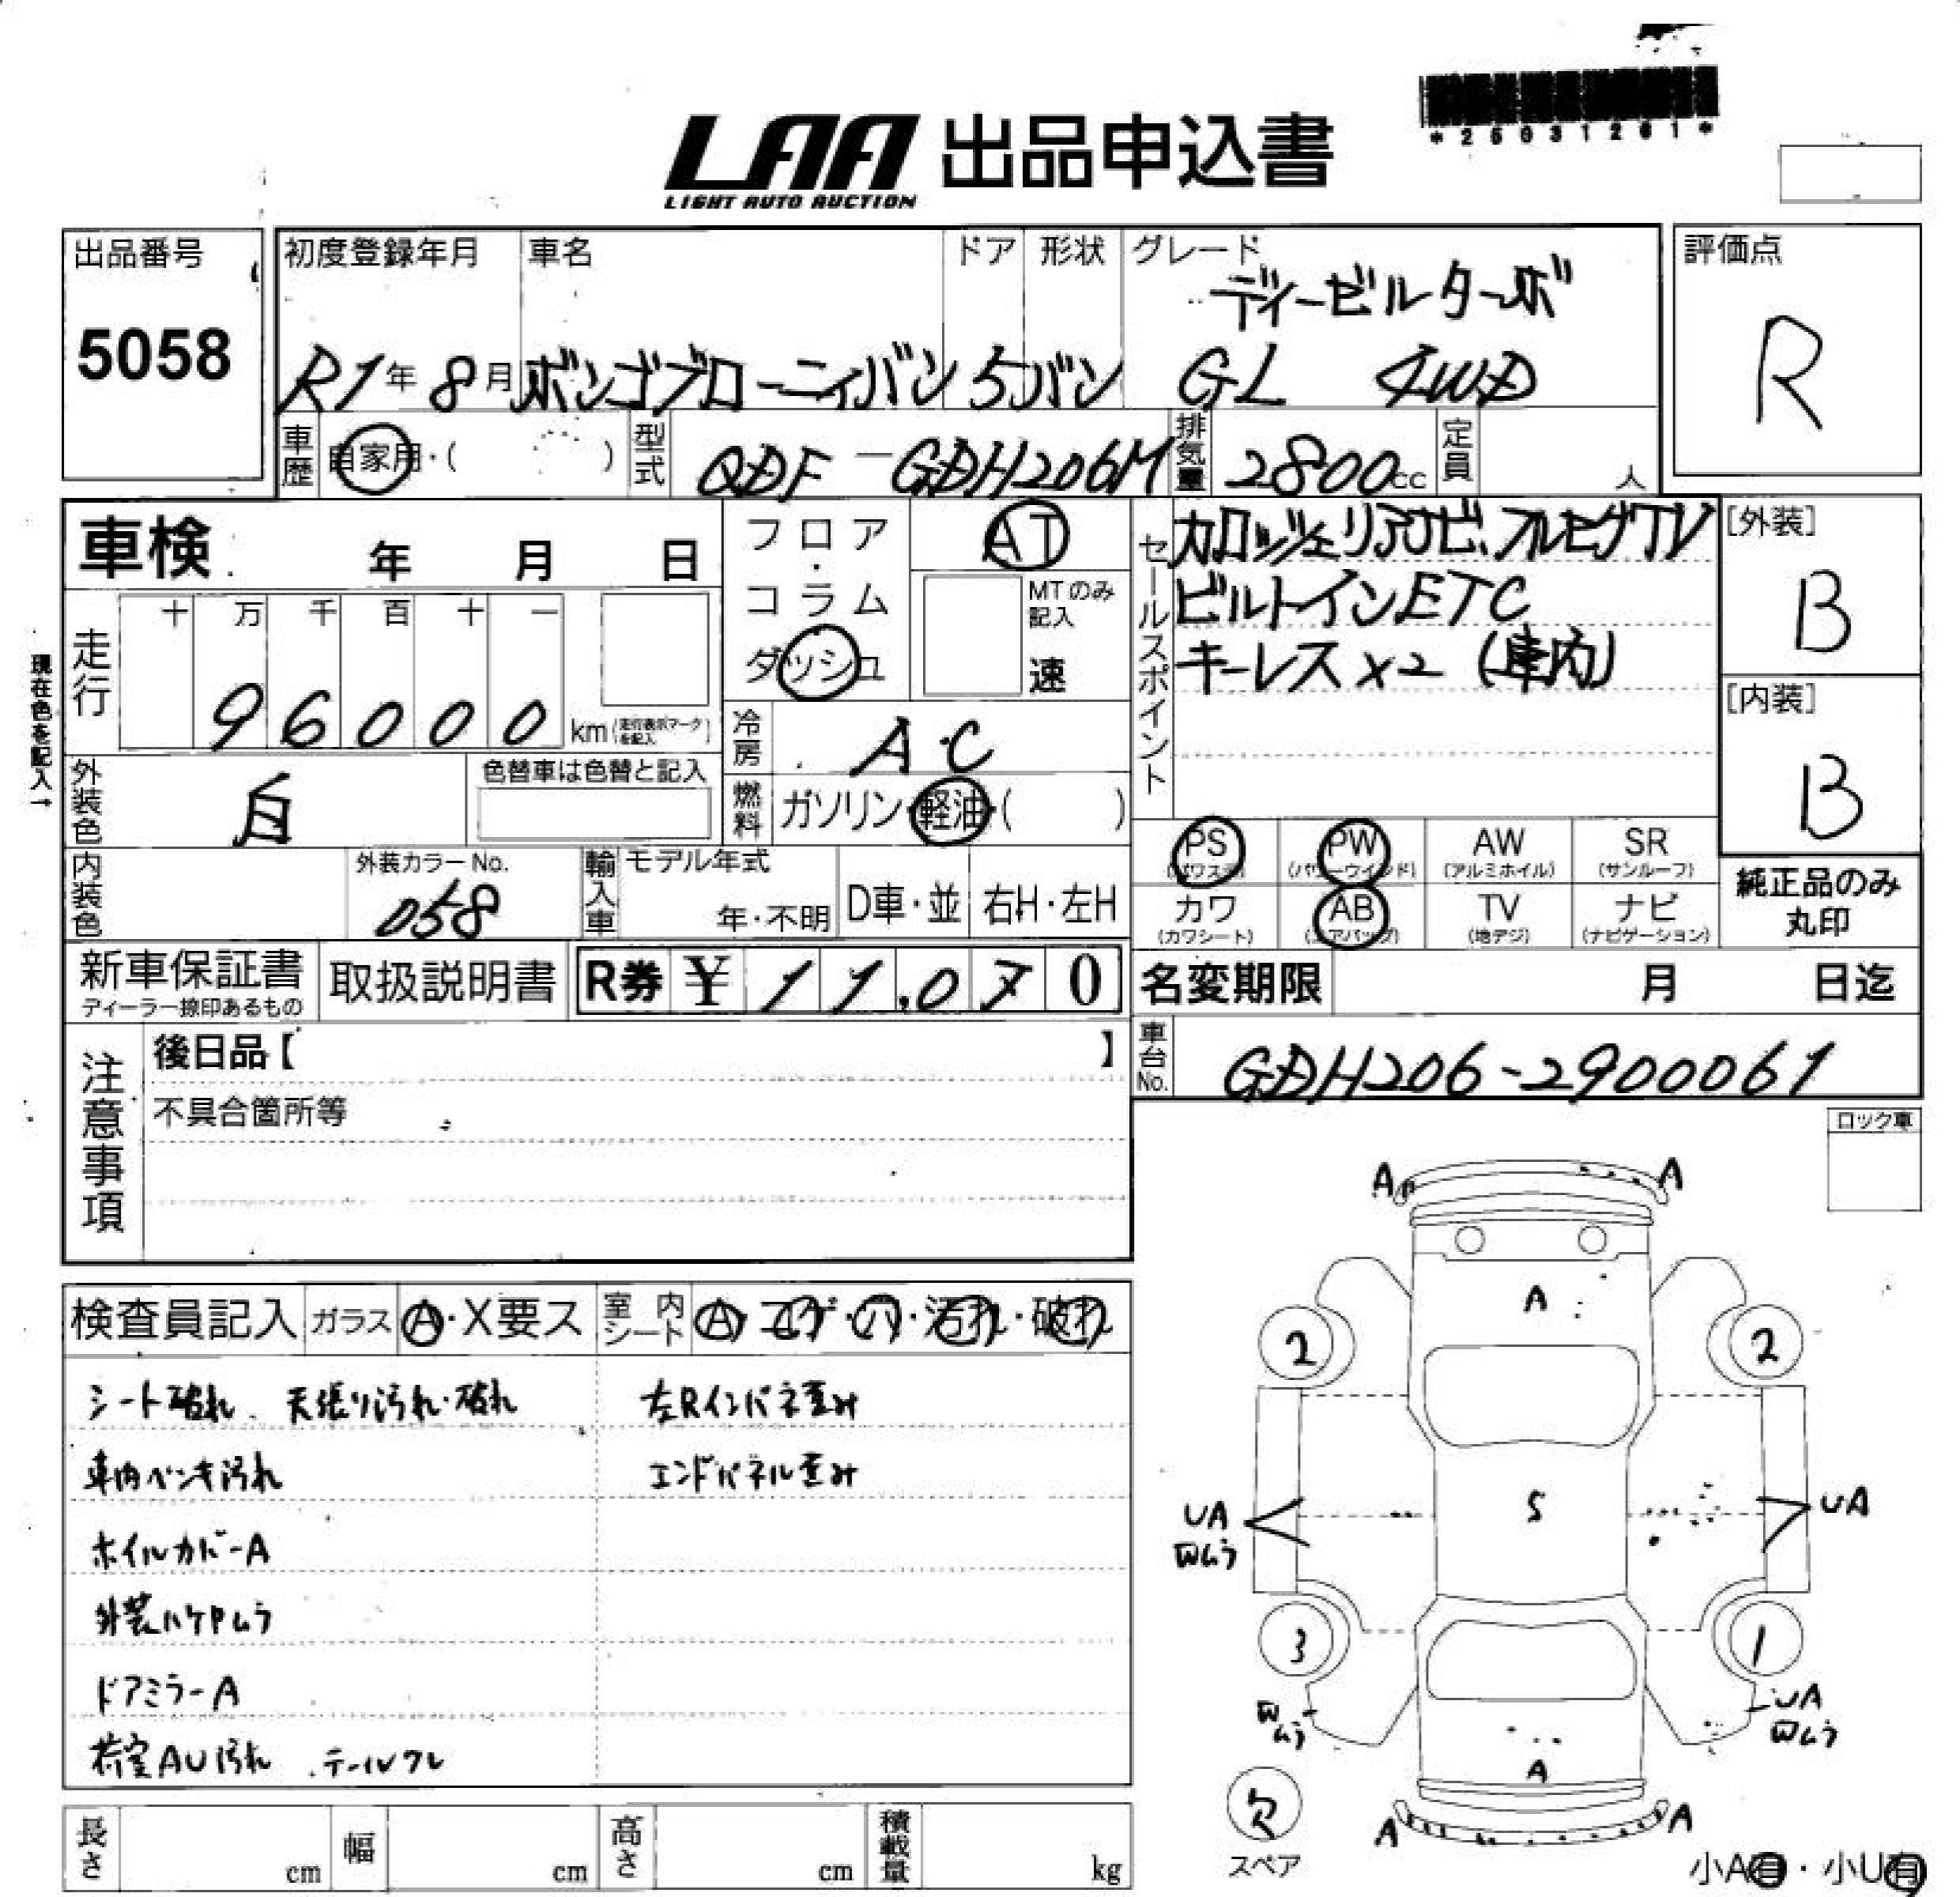 *25031261*
LAA 出品申込書
LIGHT AUTO AUCTION
出品番号
5058
初度登録年月 車名 ドア 形状 グレード
ディーゼルターボ
R1年 8月 ボンゴブローニィバン 5 バン GL 4WD
評価点
R
車歴 自家用・( ) 型式 QDF-GDH206M 排気量 2800cc 定員 人
車検 年 月 日
フロア・コラム
ダッシュ
AT
MTのみ記入
速
セールスポイント
カロッツェリアナビ、フルセグTV
ビルトインETC
キーレス×2 (車内)
[外装]
B
[内装]
B
現在色を記入→
走行 十 万 千 百 十 一
96000 km (走行表示マークを記入)
冷房 A・C
外装色 白 色替車は色替と記入
燃料 ガソリン・軽油・( )
内装色 外装カラーNo. 058
輸入車 モデル年式 年・不明 D車・並 右H・左H
PS (パワステ) PW (パワーウインド) AW (アルミホイル) SR (サンルーフ)
カワ (カワシート) AB (エアバッグ) TV (地デジ) ナビ (ナビゲーション)
純正品のみ
丸印
新車保証書
ディーラー捺印あるもの
取扱説明書 R券 ¥ 11,070
名変期限 月 日迄
車台No. GDH206-2900061
注意事項
後日品【 】
不具合箇所等
ロック車
検査員記入 ガラス A・X要ス 室内シート A・コゲ・穴・汚れ・破れ
シート破れ、天張り汚れ・破れ 左Rインパネ歪み
車内ペンキ汚れ エンドパネル歪み
ホイルカバーA
外装ハケPムラ
ドアミラーA
荷室AU汚れ .テールワレ
A A
A
2 2
S
UA
凹ムラ
UA
3 1
凹ムラ
UA
凹ムラ
A
A A
欠
スペア
小A有・小U有
長さ cm 幅 cm 高さ cm 積載量 kg